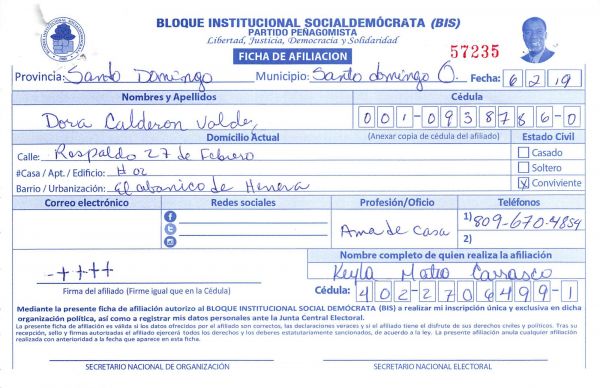 BLOQUE INSTITUCIONAL SOCIALDEMÓCRATA (BIS)
PARTIDO PEÑAGOMISTA
Libertad, Justicia, Democracia y Solidaridad
FICHA DE AFILIACION
57235
Provincia: Santo Domingo Municipio: Santo domingo O. Fecha: 6/2/19
Nombres y Apellidos Cédula
Dora Calderon Valdez 001-0938786-0
Domicilio Actual (Anexar copia de cédula del afiliado) Estado Civil
Calle: Respaldo 27 de Febrero Casado
#Casa / Apt. / Edificio: # 02 Soltero
Barrio / Urbanización: El abanico de Herrera X Conviviente
Correo electrónico Redes sociales Profesión/Oficio Teléfonos
Ama de Casa 1) 809-670-4854
2)
Nombre completo de quien realiza la afiliación
Keyla Mateo Carrasco
Firma del afiliado (Firme igual que en la Cédula) Cédula: 402-2706499-1
Mediante la presente ficha de afiliación autorizo al BLOQUE INSTITUCIONAL SOCIAL DEMÓCRATA (BIS) a realizar mi inscripción única y exclusiva en dicha
organización política, así como a registrar mis datos personales ante la Junta Central Electoral.
La presente ficha de afiliación es válida si los datos ofrecidos por el afiliado son correctos, las declaraciones veraces y si el afiliado tiene el disfrute de sus derechos civiles y políticos. Tras su
recepción, sello y firmas autorizadas el afiliado ejercerá todos los derechos y los deberes estatutariamente sancionados, de acuerdo a la ley. La presente afiliación anula cualquier afiliación
realizada con anterioridad a la fecha que aparece en esta ficha.
SECRETARIO NACIONAL DE ORGANIZACIÓN SECRETARIO NACIONAL ELECTORAL